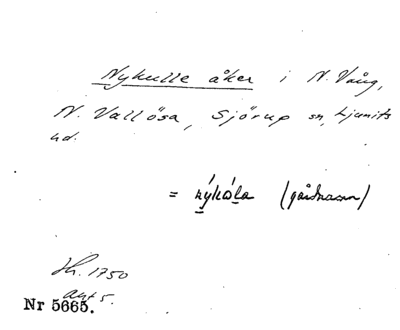 Nykulle åker i N. Vång,
N. Vallösa, Sjörup sn, Ljunits
hd.
= nýkòla (gårdnamn)
Jh. 1750
akt 5.
Nr 5665.